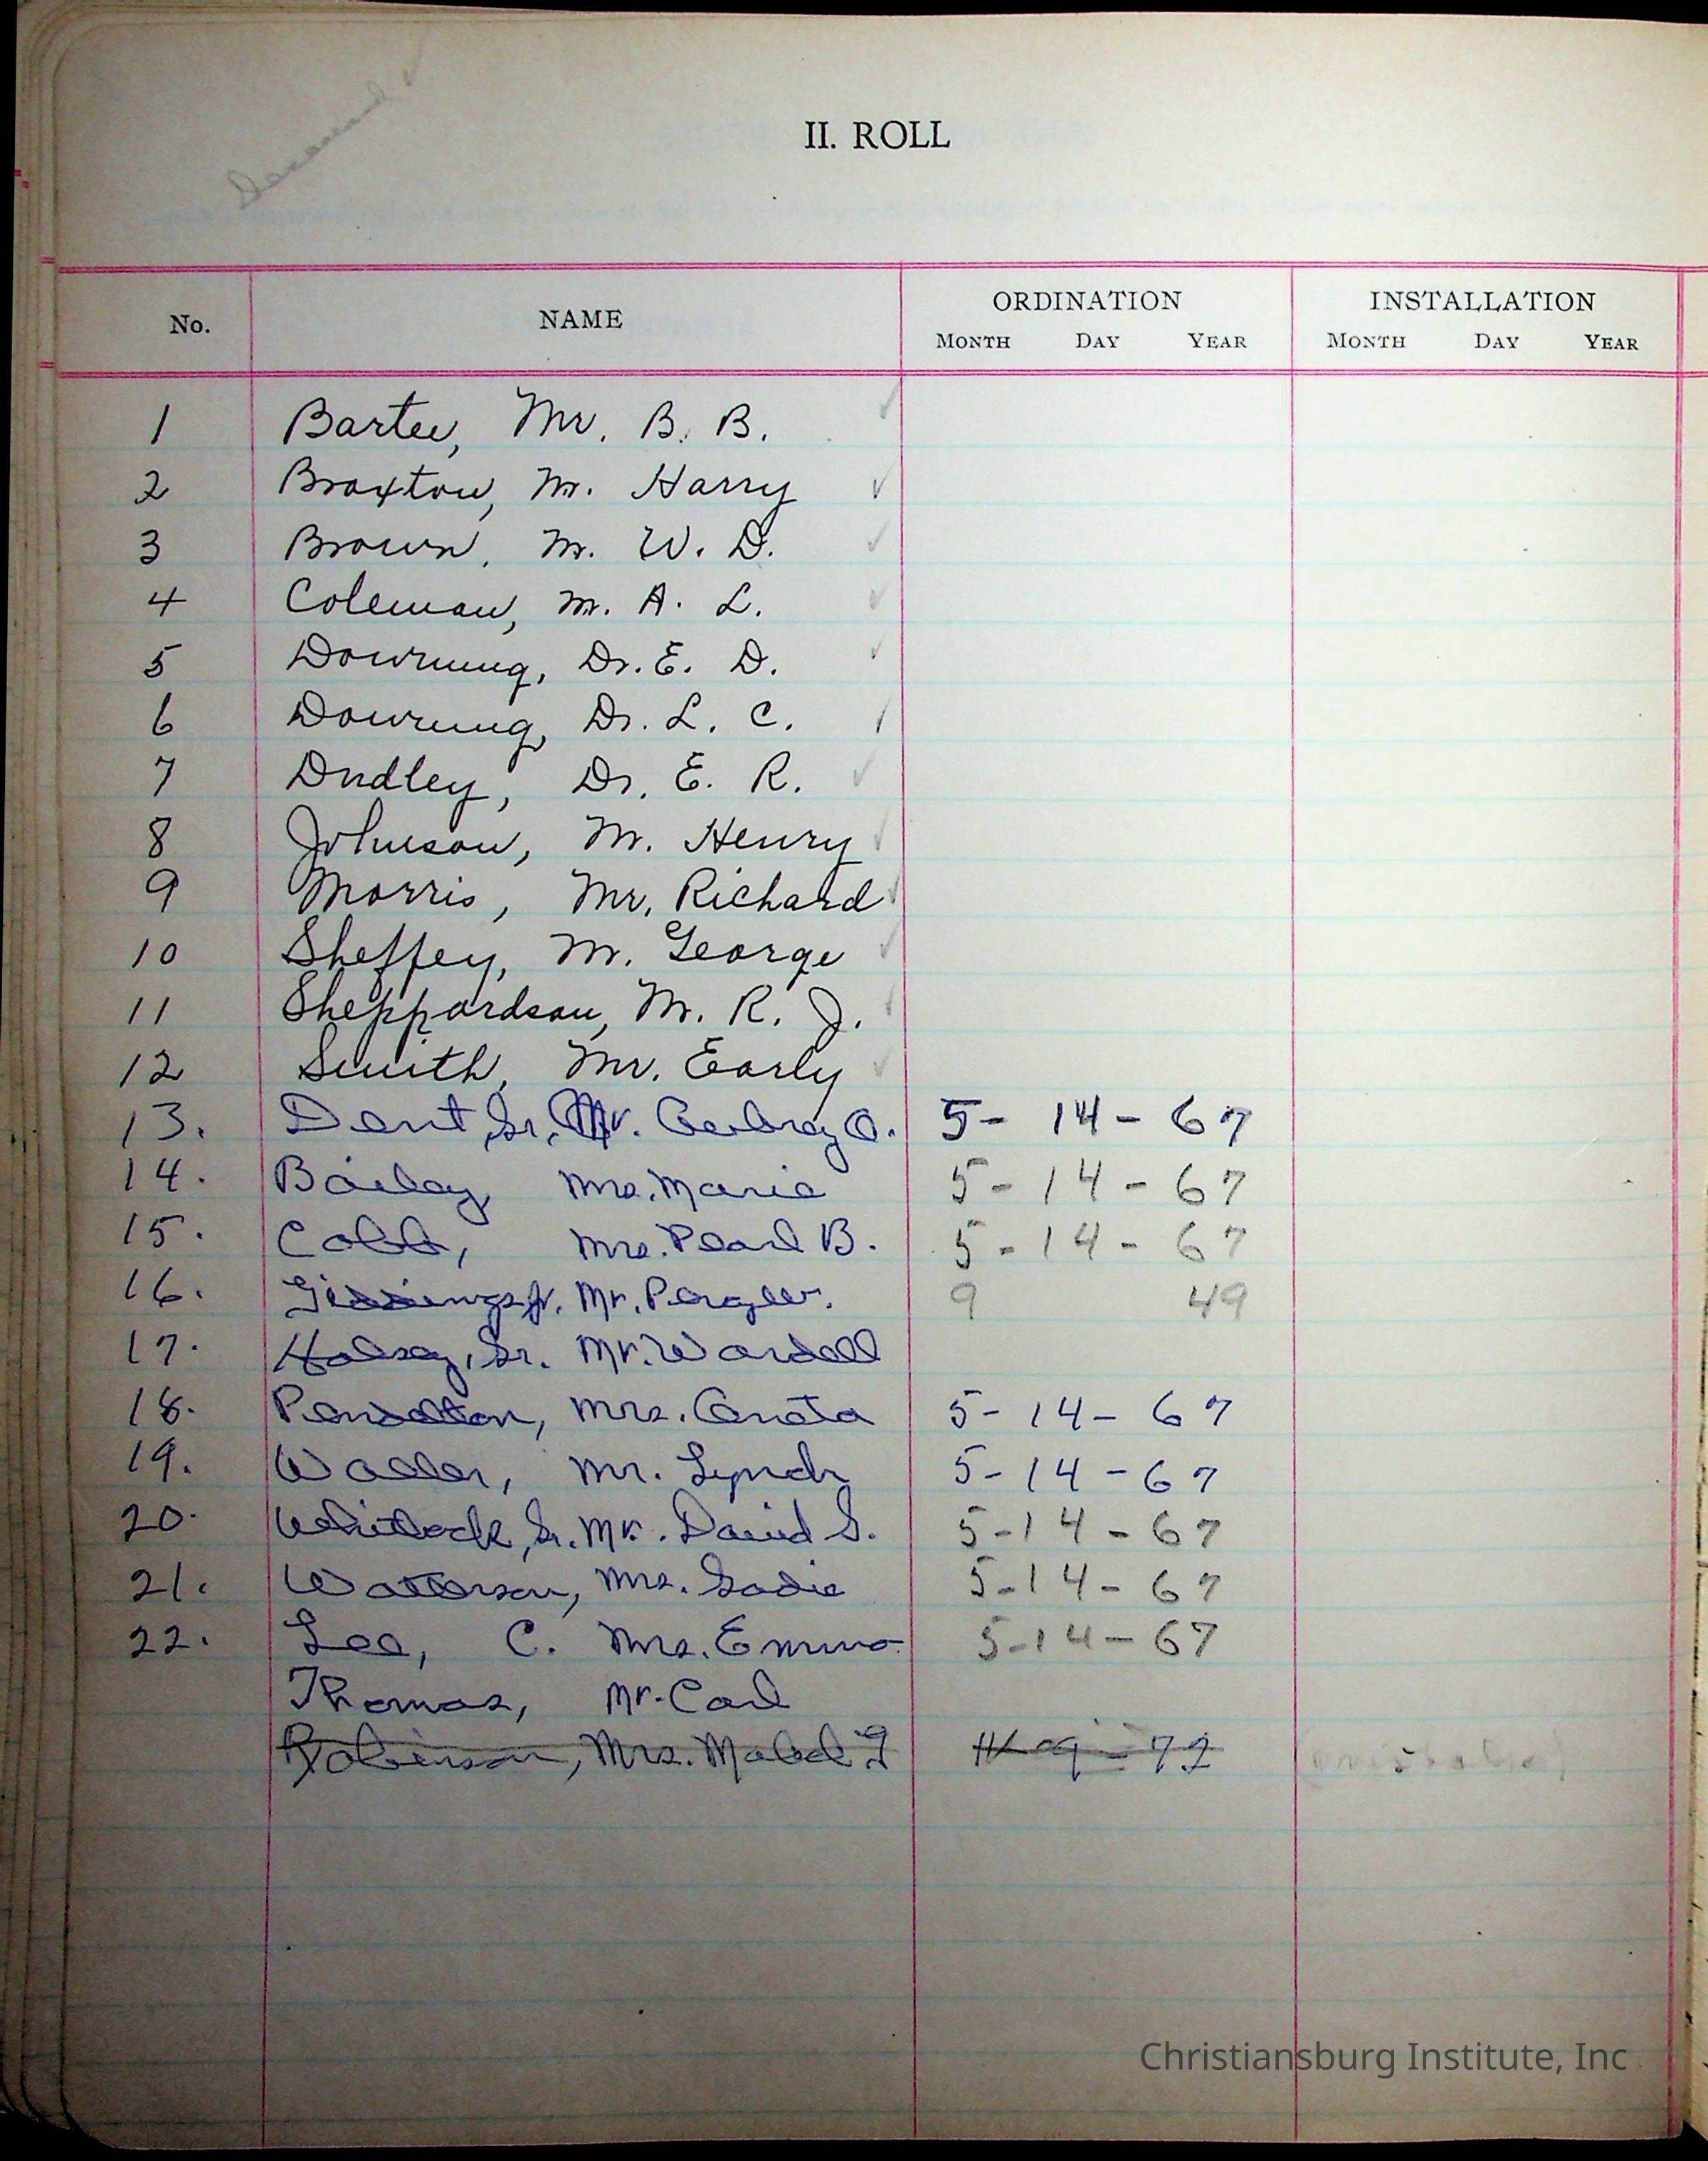 Deceased ✓
II. ROLL
No. NAME ORDINATION INSTALLATION
MONTH DAY YEAR MONTH DAY YEAR
1 Bartee, Mr. B. B. ✓
2 Braxton, Mr. Harry ✓
3 Brown, Mr. W. D. ✓
4 Coleman, Mr. A. L. ✓
5 Downing, Dr. E. D. ✓
6 Downing, Dr. L. C. ✓
7 Dudley, Dr. E. R. ✓
8 Johnson, Mr. Henry ✓
9 Morris, Mr. Richard ✓
10 Sheffey, Mr. George ✓
11 Sheppardson, Mr. R. J. ✓
12 Smith, Mr. Early ✓
13. Dent, Sr. Mr. Aubrey O. 5- 14- 67
14. Bailey, Mrs. Marie 5- 14- 67
15. Cobb, Mrs. Pearl B. 5- 14- 67
16. Jr. Mr. 9 49
17. Halsey, Sr. Mr. Wardell
18. Pendleton, Mrs. 5- 14- 67
19. Waller, Mr. Lynch 5- 14- 67
20. Whitlock, Sr. Mr. David S. 5-14-67
21. Watterson, Mrs. Sadie 5-14-67
22. Lee, C. Mrs. Emma 5-14-67
Thomas, Mr. Carl
Robinson, Mrs. Mabel 9-72
Christiansburg Institute, Inc